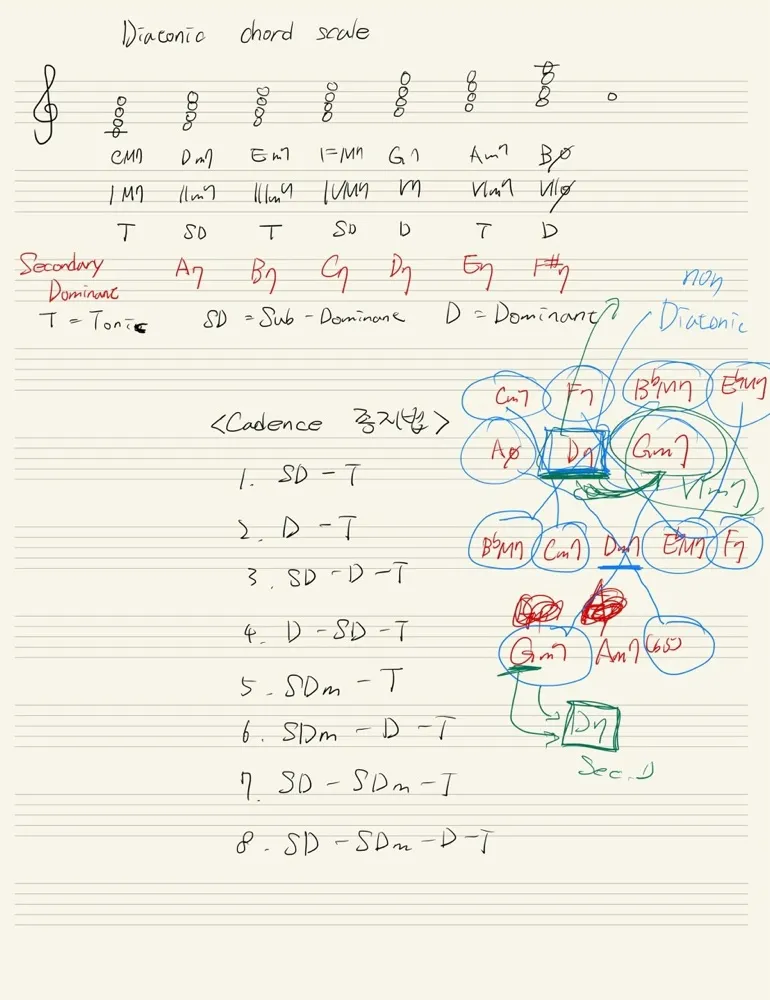 Diatonic chord scale
CM7 Dm7 Em7 FM7 G7 Am7 Bø
IM7 IIm7 IIIm7 IVM7 V7 VIm7 VIIø
T SD T SD D T D
Secondary Dominant A7 B7 C7 D7 E7 F#7
T = Tonic SD = Sub-Dominant D = Dominant
non
Diatonic
<Cadence 종지법>
1. SD - T
2. D - T
3. SD - D - T
4. D - SD - T
5. SDm - T
6. SDm - D - T
7. SD - SDm - T
8. SD - SDm - D - T
Cm7 F7 B♭M7 E♭M7
Aø D7 Gm7
VIm7
B♭M7 Cm7 Dm7 E♭M7 F7
Gm7 Am7
D7
Sec.D